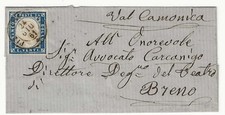 Val Camonica
All' Onorevole
Sig. Avvocato Carcanigo
Direttore Deg.mo del Teatro
di
Breno